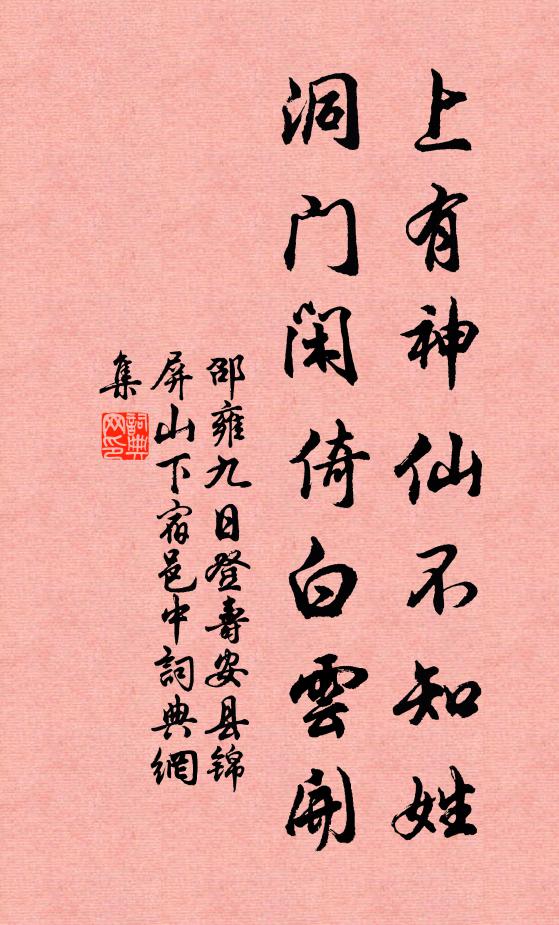 上有神仙不知姓
洞门闲倚白雲開
邵雍九日登壽安县锦
屏山下宿邑中詞典網
集
詞典
网印